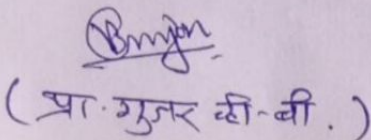 ( प्रा. गुजर व्ही-बी. )